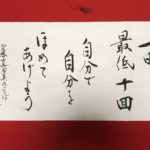 一日
最低十回
自分で
自分を
ほめて
あげよう